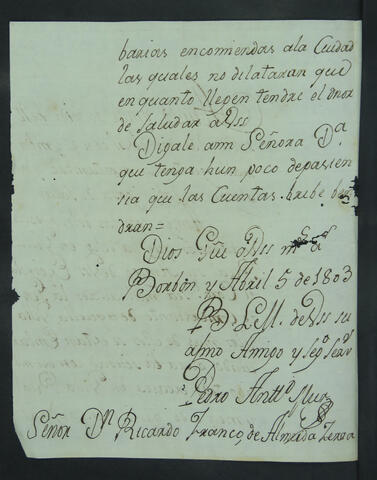 barias encomiendas ala Ciudad
las quales no dilataran que
en quanto llegen tendre el Onor
de saludar a Vss
Digale ami Señora Dª
que tenga hun poco depasien
sia que las Cuentas bribe ben
dran=
Dios Gûe a Vss mˢ aˢ
Borbon y Abril 5 de 1803
B. L. M. de Vss su
afmo Amigo y Segº Serv
Pedro Anttº
Señor Dⁿ Ricardo Franco, de Almeida Serra